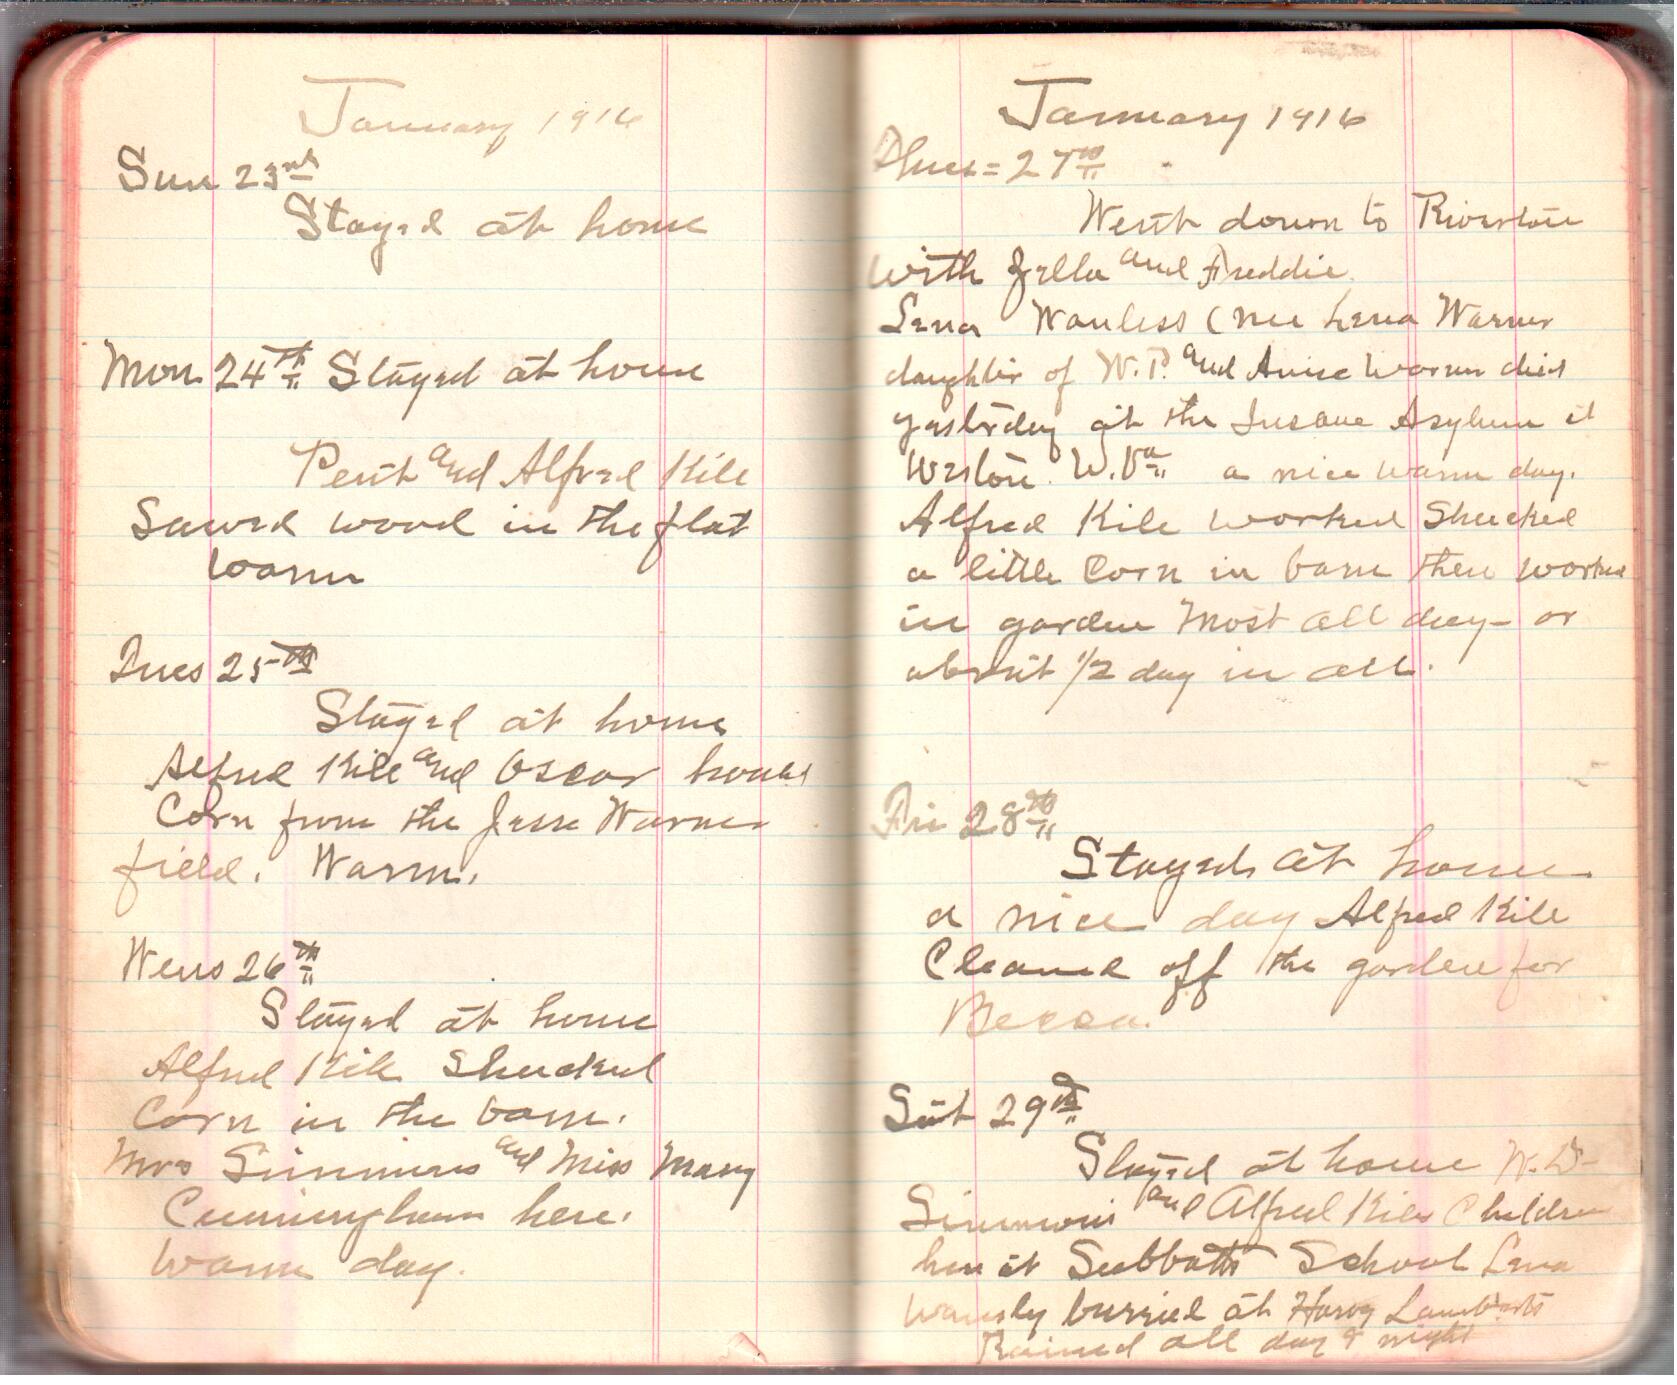 January 1916
Sun 23rd
Stayed at home
Mon 24th Stayed at home
Pent and Alfred Kile
Sawed wood in the flat
warm
Tues 25th
Stayed at home
Alfred Kile and Oscar hauled
Corn from the Jesse Warner
field. Warm.
Wens 26th
Stayed at home
Alfred Kile Shucked
Corn in the barn.
Mrs Simmons and Miss Mary
Cunningham here.
Warm day.
January 1916
Thurs = 27th
Went down to Riverton
with Zella and Freddie
Lena Wanless (nee Lena Warner
daughter of W. P. and Amise Warner died
yesterday at the Insane Asylum at
Weston. W.Va a nice warm day.
Alfred Kile worked Shucked
a little Corn in barn then worked
in garden Most all day - or
about 1/2 day in all.
Fri 28th
Stayed at home
a nice day Alfred Kile
Cleaned off the garden for
Becca.
Sat 29th
Stayed at home W. D-
Simmons and Alfred Kiles Children
here at Sabbath School Lena
burried at Harvy Lamberts
Rained all day & night